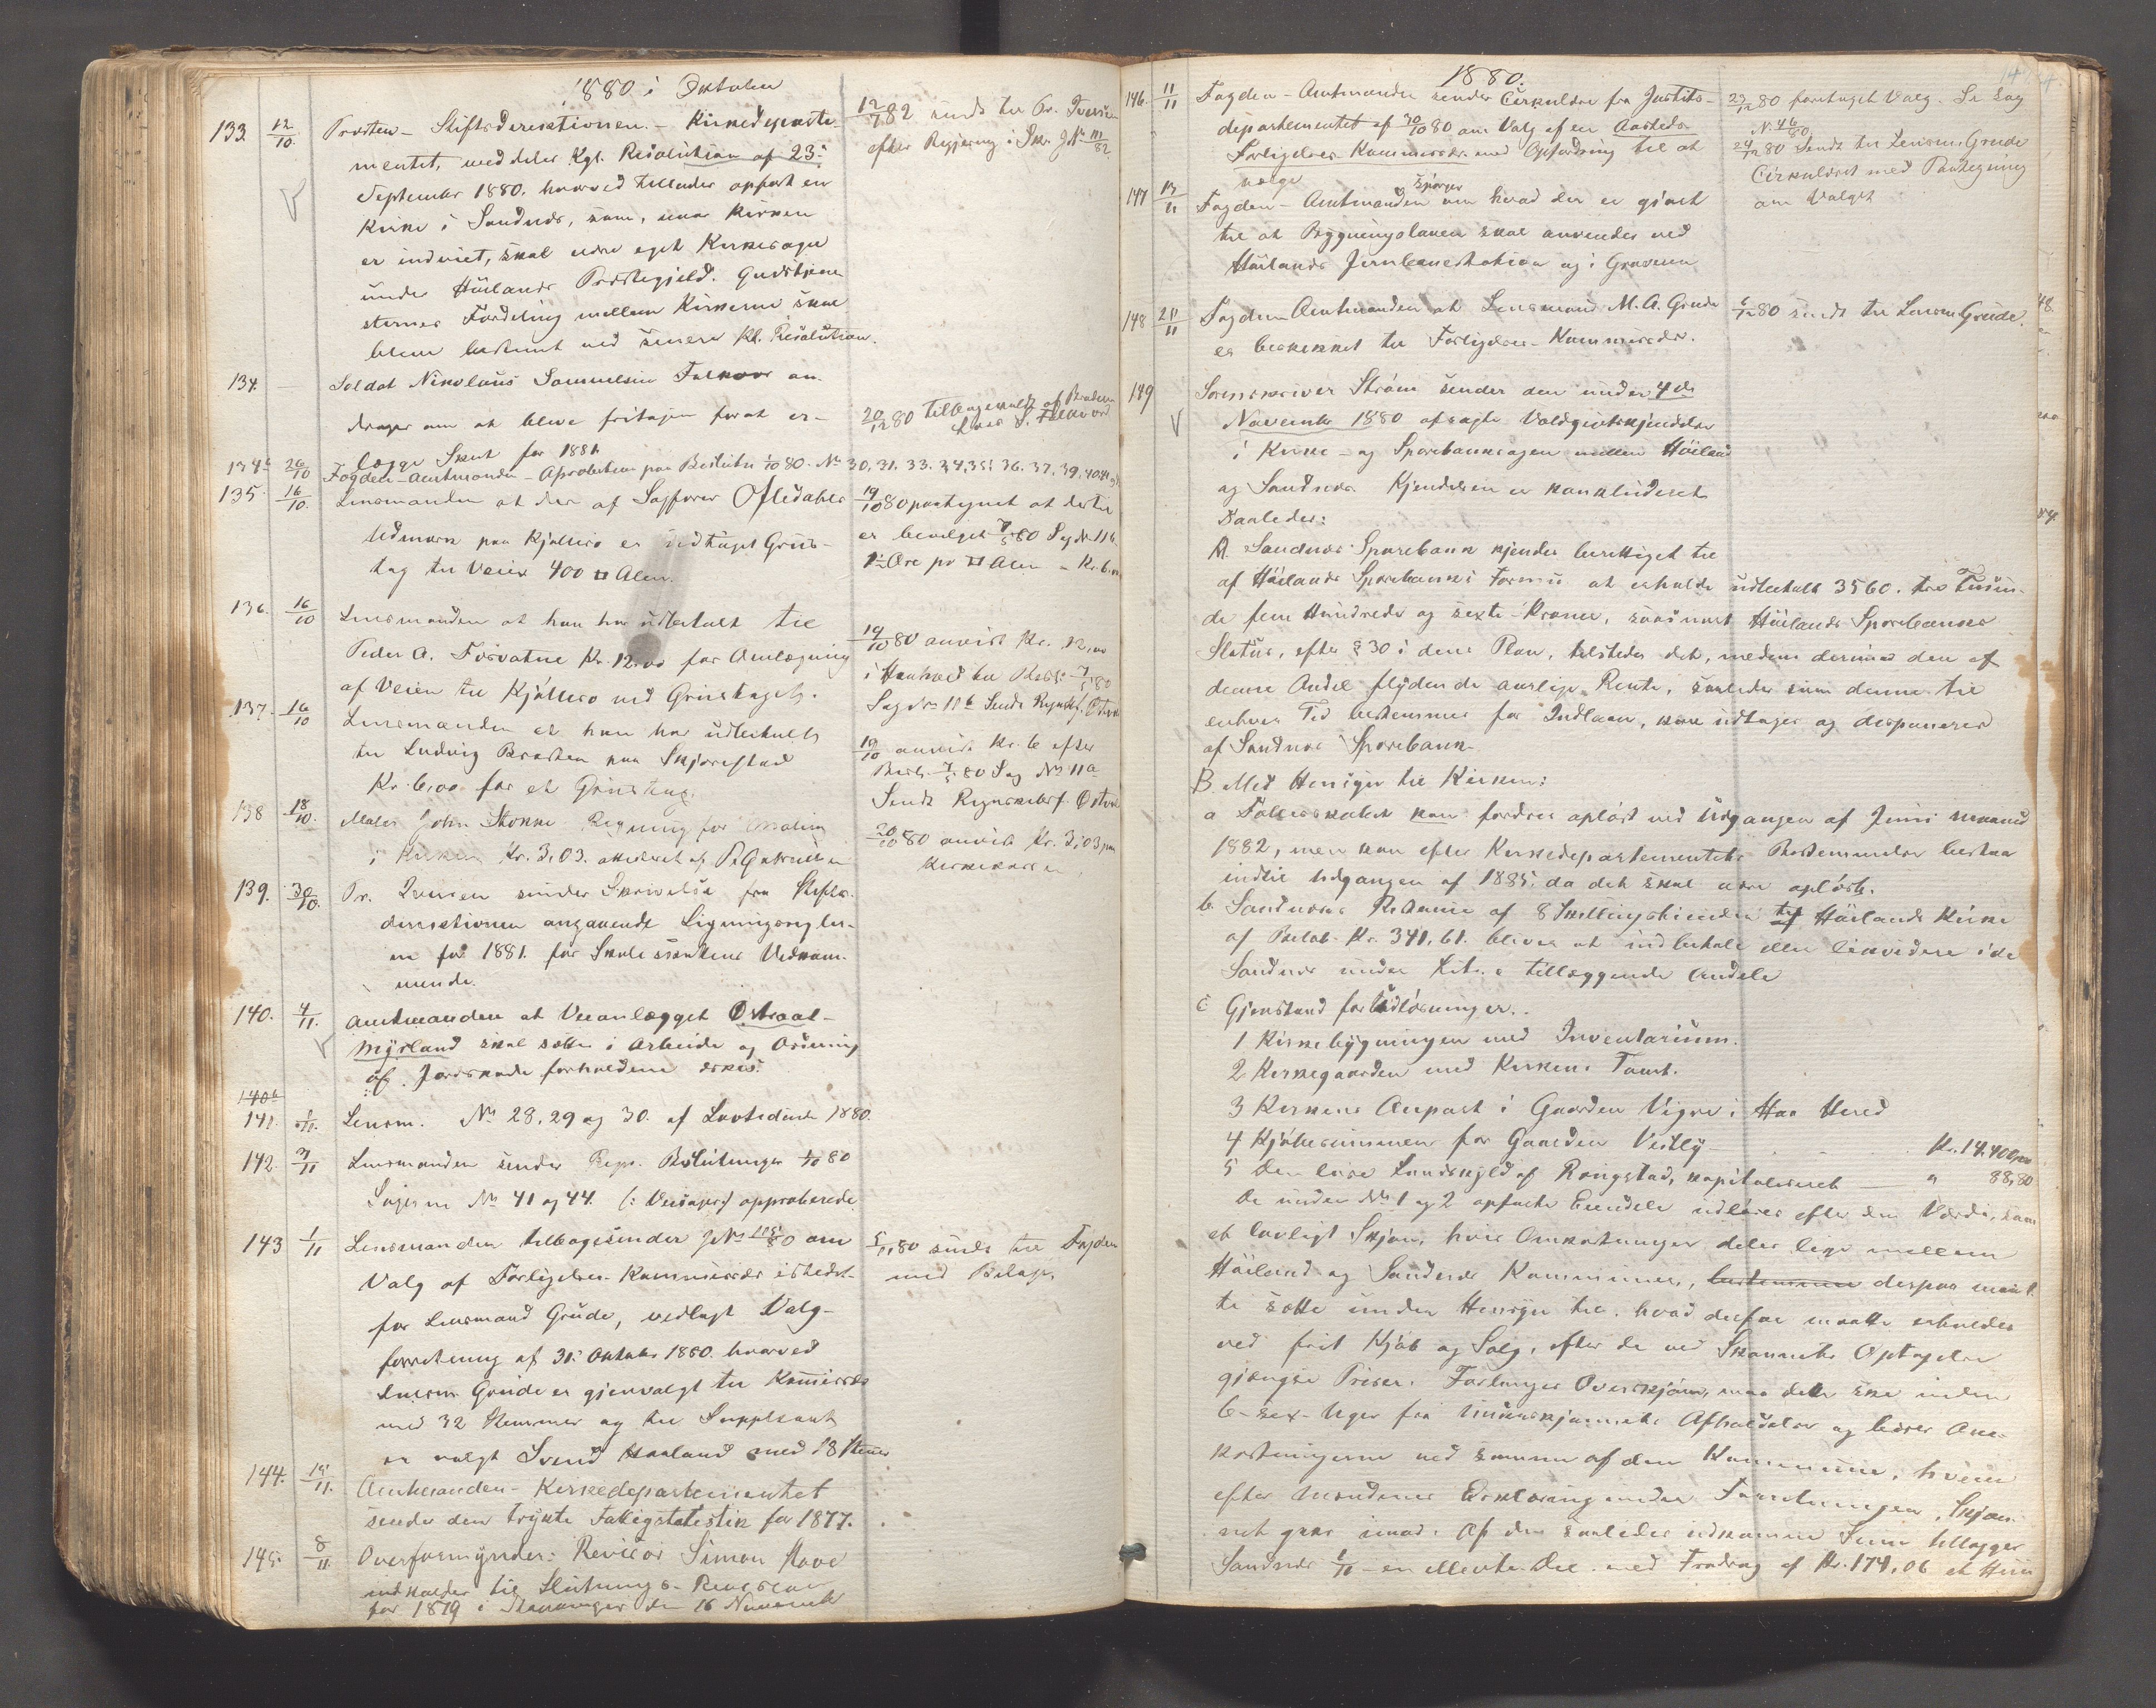 1880 i Oktober
133. 12/10. Provsten - Stiftsdirektionen. - Kirkedeparte-
mentet, meddeler Kgl. Resolution af 23:
September 1880. hvorved tillades opført en
Kirke i Sandnæs, som, naar Kirken
er indviet, skal være eget Kirkesogn
under Høilands Præstegjeld. Gudstjene
sternes Fordeling mellem Kirkerne skal
blive bestemt ved senere Kl. Resolution.
12/7 82 sendt til Pr. Iversen
efter Begjering i Skr. J.No 111/82
134. — Soldat Nikolaus Samuelsen Folkvor an-
drager om at blive fritagen for at er-
lægge Skat for 1881.
20/12 80 tilbagekaldt af Broderen
Lars S. Folkvord
134b 26/10 Fogden - Amtmanden - Aprobation paa Beslutn 1/10 80. No 30, 31. 33. 34, 35. 36. 37. 39, 40
135. 16/10. Lensmanden at der af Sagfører Oftedahls
Udmark paa Kjøllero er udtaget Grus-
tag til Veien 400 □ Alen.
19/10 80 paategnet at dertil
er bevilget 7/5 80 Sag No 11b
1½ Øre pr □ Alen = Kr. 6.00
136. 16/10 Lensmanden at han har udbetalt til
Peder A. Fosvatne Kr. 12.00 for Omlægning
af Veien til Kjøllero ved Grustaget.
19/10 80 anvist Kr. 12,00
i Henhold til Besl: 7/5 80
Sag No 11b Sendt Regnskf. Østraat
137. 16/10 Lensmanden at han har udbetalt
til Ludvig Braaten paa Skjærestad
Kr. 6,00 for et Grustag.
19/10 anvist Kr. 6 efter
Besl: 7/5 80 Sag No 11a
Sendt Regnskabsf. Østraat
138 18/10. Maler John Stokke Regning for Maling
i Kirken Kr. 3,03. attesteret af P. Gabrielsen
20/10 80 anvist Kr. 3,03 paa
Kirkekassen
139. 30/10. Pr. Iversen sender Skrivelse fra Stifts-
direktionen angaaende Ligningsregler-
ne for 1881. for Skolevæsenets Vedkom-
mende.
140. 4/11. Amtmanden at Veianlægget Østraat -
Myrland skal sættes i Arbeide og Ordning
af Jordskadeforholdene æskes.
140b
141. 1/11. Lensm. No 28, 29 og 30. af Lovtidende 1880.
142. 3/11 Lensmanden sender Repr. Beslutninger 1/10 80
Sagerne No 41 og 44. (: Veisager:) approberede
143 1/11 Lensmanden tilbagesender J.No 115/80 om
Valg af Forligelses-Kommissær istedet-
for Lensmand Grude, vedlagt Valg-
forretning af 31: Oktober 1880. hvorved
Lensm. Grude er gjenvalgt til Komissær
med 32 Stemmer og til Supleant
er valgt Svend Haaland med 18 Stemmer
5/11 80 sendt til Fogden
med Bilage,
144. 15/11. Amtmanden - Kirkedepartementet
sender den trykte Fattigstatistik for 1877.
145. 8/11 Overformynder: Revisor Simon Hove
indkalder til Slutnings-Revision
for 1879 i Stavanger den 16 November
1880.
146. 11/11 Fogden - Amtmanden sender Cirkulære fra Justits-
departementet af 30/10 80 om Valg af en Aasteds
Forligelses-Kommissær med Opfordring til at
vælge
23/12 80 foretaget Valg. Se Sag
No 46/80
24/12 80 Sendt til Lensm. Grude
Cirkulæret med Paategning
om Valget
147 13/11 Fogden - Amtmanden spørger om hvad der er gjort
til at Bygningsloven skal anvendes ved
Høilands Jernbanestation og i Graveren
148 25/11 Fogden Amtmanden at Lensmand M. A. Grude
er beskikket til Forligelses-Kommissær.
6/12 80 sendt til Lensm Grude.
149 Sorenskriver Strøm sender den under 4de
November 1880 afsagte Voldgiftskjendelse
i Kirke- og Sparebanksagen mellem Høiland
og Sandnæs Kjendelsen er konkluderet
saaledes:
A. Sandnæs Sparebank kjendes berettiget til
af Høilands Sparebanks Formue at erholde udbetalt 3560. tre Tusin-
de fem Hundrede og sexti Kroner, saasnart Høilands Sparebankes
Status, efter § 30 i dens Plan, tilsteder det, medens derimod den af
denne Andel flydende aarlige Rente, saaledes som denne til
enhver Tid bestemmes for Indlaan, kan udtages og disponeres
af Sandnæs Sparebank.
B. Med Hensyn til Kirken:
a Fællesskabet kan fordres opløst ved Udgangen af Juni Maaned
1882, men kan efter Kirkedepartementets Bestemmelse bestaa
indtil Udgangen af 1885, da det skal være opløst.
b. Sandnæs Redamie af 8 Skillingstienden til Høilands Kirke
af Beløb Kr. 341,61. bliver at indbetale eller likvidere i de
Sandnæs under Litr. c tillæggende Andele
c Gjenstand for Udløsninger.
1 Kirkebygningen med Inventarium.
2 Kirkegaarden med Kirkens Tomt.
3 Kirkens Anpart i Gaarden Vigre i Haa Hered
4 Kjøbesummen for Gaarden Vestly — Kr. 14.400,00
5 Den løse Landskyld af Rongstad, kapitaliseret — " 88,80
De under No 1 og 2 opførte Eiendele udløses efter den Værdi, som
et lovligt Skjøn, hvis Omkostninger deles lige mellem
Høiland og Sandnæs Kommuner, bestemmer derpaa maat-
te sætte under Hensyn til hvad derfor maatte erholdes
ved frit Kjøb og Salg, efter de ved Skjønnets Optagelse
gjængse Priser. Forlanges Overskjøn, maa dette ske inden
6 - sex - Uger fra Underskjønnets Afholdelse og bæres Om-
kostningerne ved samme af den Kommune, hvem
efter Mændenes Erklæring under Forretningen, Skjøn-
net gaar imod. Af den saaledes udkomne Sum tillægges
Sandnæs 1/11 - en ellevte Del med Fradrag af Kr. 174,06 et Hun